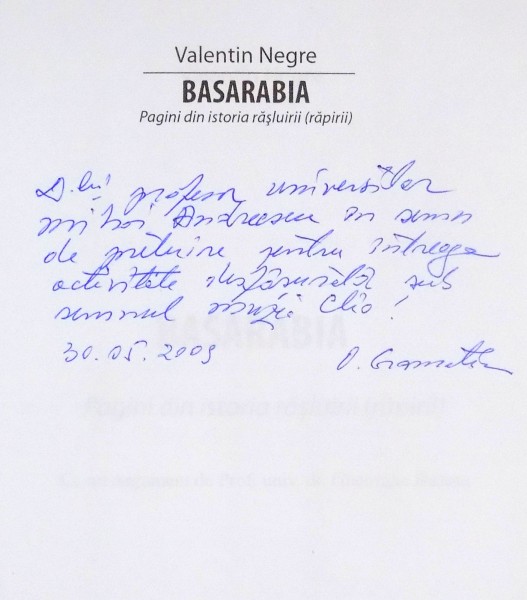 Valentin Negre
BASARABIA
Pagini din istoria rășluirii (răpirii)
D-lui profesor universitar
Mihai Andreescu în semn
de prețuire pentru întreaga
activitate desfășurată sub
semnul muzei Clio!
30.05.2009
BASARABIA
Pagini din istoria rășluirii (răpirii)